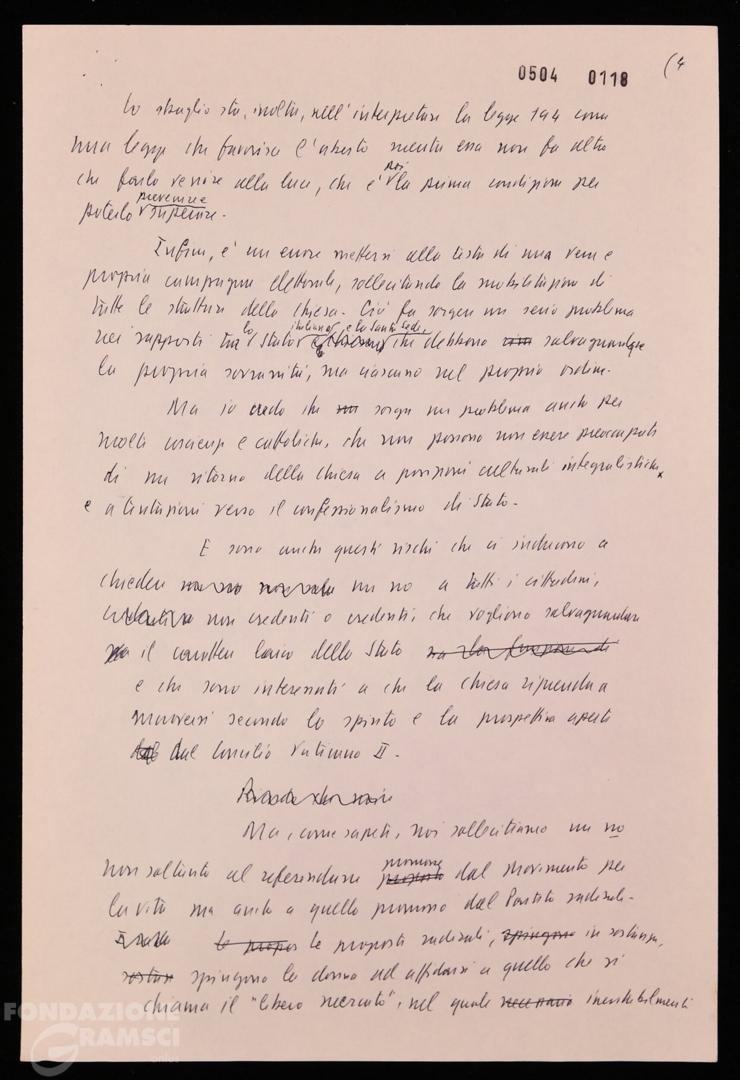 0504 0118 (4
Lo sbaglio sta, inoltre, nell'interpretare la legge 194 come
una legge che favorisce l'aborto mentre essa non fa altro
che farlo venire alla luce, che è poi la prima condizione per
poterlo prevenire superare.
Infine, è un errore mettersi alla testa di una vera e
propria campagna elettorale, sollecitando la mobilitazione di
tutte le strutture della Chiesa. Ciò fa sorgere un serio problema
nei rapporti tra lo Stato italiano e la Santa Sede, che debbono salvaguardare
la propria sovranità, ma ciascuno nel proprio ordine.
Ma io credo che sorge un problema anche per
molte coscienze cattoliche, che non possono non essere preoccupati
di un ritorno della Chiesa a posizioni culturali integralistiche
e a tentazioni verso il confessionalismo di Stato.
E sono anche questi rischi che ci inducono a
chiedere un no a tutti i cittadini,
non credenti o credenti, che vogliono salvaguardare
il carattere laico dello Stato
e che sono interessati a che la Chiesa riprenda a
muoversi secondo lo spirito e la prospettiva aperti
dal Concilio Vaticano II.
Ma, come sapete, noi sollecitiamo un no
non soltanto al referendum promosso dal Movimento per
la vita ma anche a quello promosso dal Partito radicale.
le proposte radicali, in sostanza,
spingono la donna ad affidarsi a quello che si
chiama il "libero mercato", nel quale inevitabilmente
FONDAZIONE
GRAMSCI
onlus